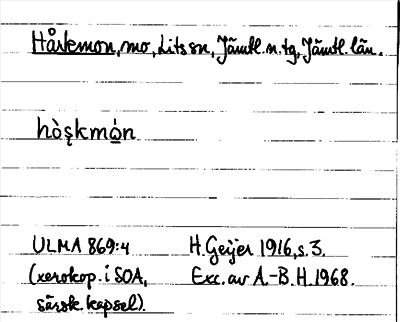 Hårkmon, mo, Lits sn, Jämtl. n. tg, Jämtl. län.
hòʂkmó̱n
ULMA 869:4 H. Geijer 1916, s. 3.
(xerokop. i SOA, Exc. av A.-B. H. 1968.
särsk. kapsel).